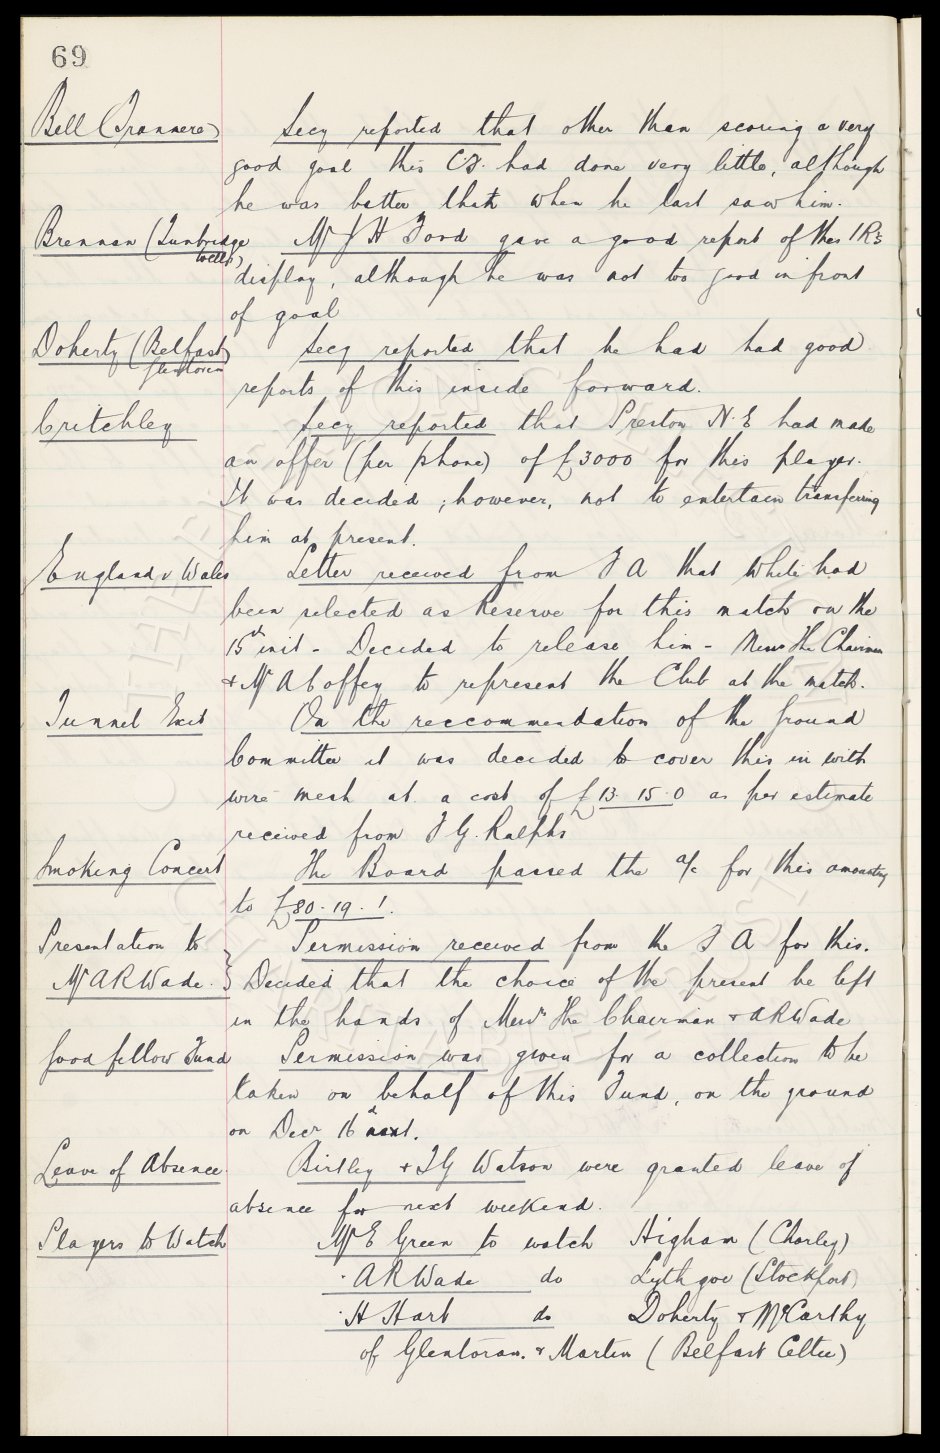 69
Bell (Tranmere) Secy reported that other than scoring a very
good goal this C.F. had done very little, although
he was better than when he last saw him.
Brennan (Tunbridge Wells) Mr J H Ford gave a good report of this I R's
display, although he was not too good in front
of goal
Doherty (Belfast Glentoran) Secy reported that he had had good
reports of this inside forward.
Critchley Secy reported that Preston N.E had made
an offer (per phone) of £3000 for this player.
It was decided, however, not to entertain transferring
him at present.
England v Wales Letter received from F A that White had
been selected as Reserve for this match on the
15th inst - Decided to release him - Messrs The Chairman
& Mr A Coffey to represent the Club at the match.
Tunnel Exit On the reccommendation of the Ground
Committee it was decided to cover this in with
wire mesh at a cost of £13.15.0 as per estimate
received from F G. Ralphs
Smoking Concert The Board passed the a/c for this amounting
to £80.19.1.
Presentation to Permission received from the F A for this.
Mr A R Wade. Decided that the choice of the present be left
in the hands of Messrs The Chairman & A R Wade
Goodfellow Fund Permission was given for a collection to be
taken on behalf of this Fund, on the ground
on Decr 16th next.
Leave of Absence. Birtley & T G Watson were granted leave of
absence for next weekend.
Players to Watch Mr E Green to watch Higham (Chorley)
" A R Wade do Lythgoe (Stockport)
" H Hart do Doherty & McCarthy
of Glentoran. & Martin (Belfast Celtic)